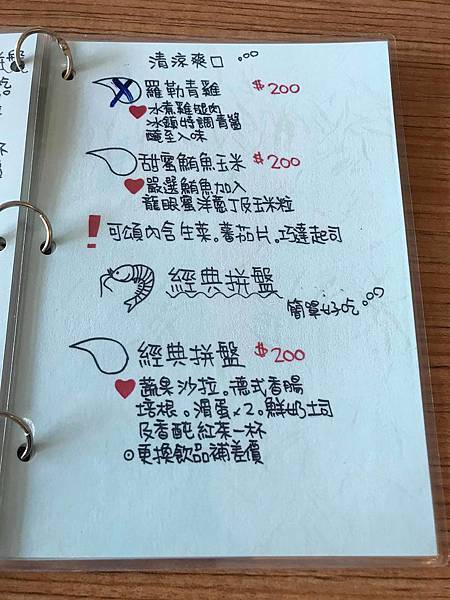 清涼爽口
羅勒青雞 $200
水煮雞腿肉
冰鎮特調青醬
醃至入味
甜蜜鮪魚玉米 $200
嚴選鮪魚加入
龍眼蜜洋蔥丁及玉米粒
! 可頌內含生菜。蕃茄片。巧達起司
經典拼盤
簡單好吃
經典拼盤 $200
蔬果沙拉。德式香腸
培根。滑蛋x2。鮮奶土司
及香醇紅茶一杯
更換飲品補差價